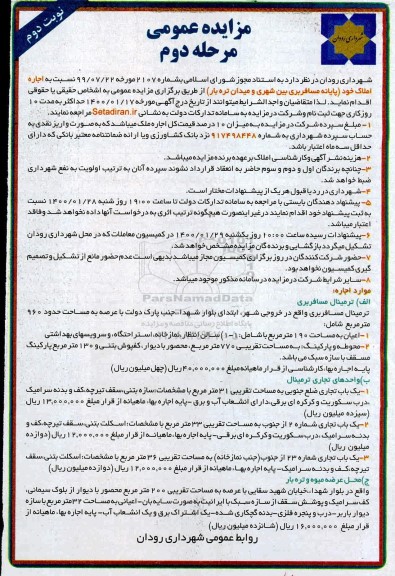 نوبت دوم
مزایده عمومی
مرحله دوم
شهرداری رودان
شهرداری رودان در نظر دارد به استناد مجوز شورای اسلامی بشماره ۲۱۰۷ مورخه ۹۹/۰۷/۲۲ نسبت به اجاره
املاک خود (پایانه مسافربری بین شهری و میدان تره بار) از طریق برگزاری مزایده عمومی به اشخاص حقیقی یا حقوقی
اقدام نماید. لذا متقاضیان واجد الشرایط میتوانند از تاریخ درج آگهی مورخه ۱۴۰۰/۰۱/۱۷ حداکثر به مدت ۱۰
روز کاری جهت ثبت نام و شرکت در مزایده به سامانه تدارکات دولت به نشانی Setadiran.ir مراجعه نمایند.
۱- مبلغ سپرده شرکت در مزایده به میزان ۱۰ درصد قیمت کل اجاره ملک میباشد که به صورت واریز نقدی به
حساب سپرده شهرداری به شماره ۹۱۷۴۹۸۴۴۸ نزد بانک کشاورزی و یا ارائه ضمانتنامه معتبر بانکی که دارای
حداقل سه ماه اعتبار باشد.
۲- هزینه نشر آگهی و کارشناسی املاک بر عهده برنده مزایده میباشد.
۳- چنانچه برندگان اول و دوم و سوم حاضر به انعقاد قرارداد نشوند سپرده آنان به ترتیب اولویت به نفع شهرداری
ضبط خواهد شد.
۴- شهرداری در رد یا قبول هر یک از پیشنهادات مختار است.
۵- پیشنهاد دهندگان بایستی با مراجعه به سامانه تدارکات دولت تا ساعت ۱۹:۰۰ روز شنبه ۱۴۰۰/۰۱/۲۸ نسبت
به ثبت پیشنهاد خود اقدام نمایند در غیر اینصورت هیچگونه ترتیب اثری به درخواست آنها داده نخواهد شد و فاقد
اعتبار میباشد.
۶- پیشنهادات رسیده ساعت ۱۰:۰۰ روز یکشنبه ۱۴۰۰/۰۱/۲۹ در کمیسیون معاملات که در محل شهرداری رودان
تشکیل میگردد بازگشایی و برنده گان مزایده مشخص خواهد شد.
۷- حضور شرکت کنندگان در روز برگزاری کمیسیون مجاز میباشد بدیهی است عدم حضور مانع از تشکیل و تصمیم
گیری کمیسیون نخواهد بود.
۸- سایر شرایط شرکت در مزایده در سامانه مذکور موجود میباشد.
موارد اجاره:
الف) ترمینال مسافربری
ترمینال مسافربری واقع در خروجی شهر، ابتدای بلوار شهدا، جنب پارک دولت با عرصه به مساحت حدود ۹۶۰
مترمربع شامل:
۱- اعیان به مساحت ۱۹۰ مترمربع با شامل: ۱-۱) سالن انتظار، نمازخانه، استراحتگاه، و سرویسهای بهداشتی
۲- محوطه و پارکینگ، به مساحت تقریبی ۷۷۰ مترمربع، محصور با دیوار، کفپوش بتنی و ۱۳۰ مترمربع پارکینگ
مسقف با سازه سبک می باشد.
پایه اجاره بها، کارشناسی از قرار ماهیانه مبلغ ۴۰,۰۰۰,۰۰۰ ریال (چهل میلیون ریال)
ب) واحدهای تجاری ترمینال
۱- یک باب تجاری ضلع جنوبی به مساحت تقریبی ۳۱ مترمربع با مشخصات: سازه بتنی، سقف تیرچه، کف و بدنه سرامیک
، درب سکوریت و کرکره ای برقی، دارای انشعاب آب و برق - پایه اجاره بها، ماهیانه از قرار مبلغ ۱۳,۰۰۰,۰۰۰ ریال
(سیزده میلیون ریال)
۲- یک باب تجاری شماره ۲ از جنوب به مساحت تقریبی ۳۳ متر مربع با مشخصات: اسکلت بتنی، سقف تیرچه، کف و
بدنه سرامیک، درب سکوریت و کرکره ای برقی- پایه اجاره بها، ماهیانه از قرار مبلغ ۱۲,۰۰۰,۰۰۰ ریال (دوازده
میلیون ریال)
۳- یک باب تجاری شماره ۲۳ از جنوب (جنب نمازخانه) به مساحت تقریبی ۳۶ مترمربع با مشخصات: اسکلت بتنی، سقف
تیرچه، کف و بدنه سرامیک- پایه اجاره بها، ماهیانه از قرار مبلغ ۱۲,۰۰۰,۰۰۰ ریال (دوازده میلیون ریال)
ج) محل عرضه میوه و تره بار
واقع در بلوار شهدا، خیابان شهید سقایی با عرصه به مساحت تقریبی ۲۰۰ متر مربع محصور با دیوار از بلوک سیمانی،
کف سرامیک و پوشش سقف از سازه سبک با ایرانیت به صورت سایه بان- اعیانی به مساحت ۳۲ متر مربع با سازه
دیوار باربر- درب و پنجره فلزی- بدنه گچکاری شده- یک اشتراک برق و یک انشعاب آب- پایه اجاره بها، ماهیانه از
قرار مبلغ ۱۶,۰۰۰,۰۰۰ ریال (شانزده میلیون ریال)
روابط عمومی شهرداری رودان